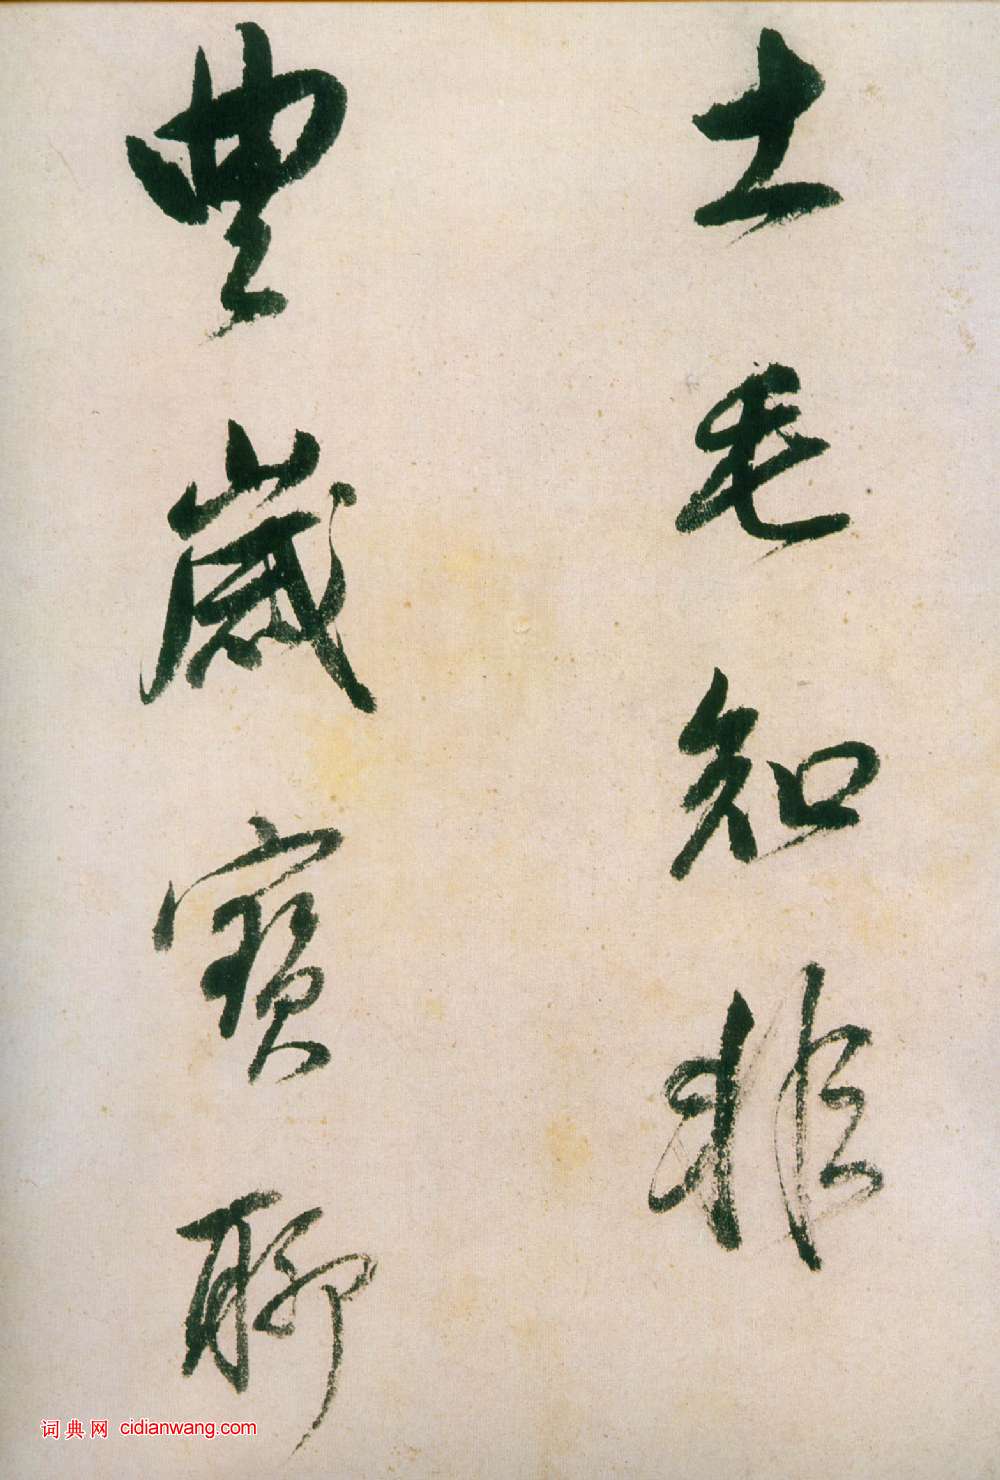 土毛知非
豊歲寶聊
词典网 cidianwang.com